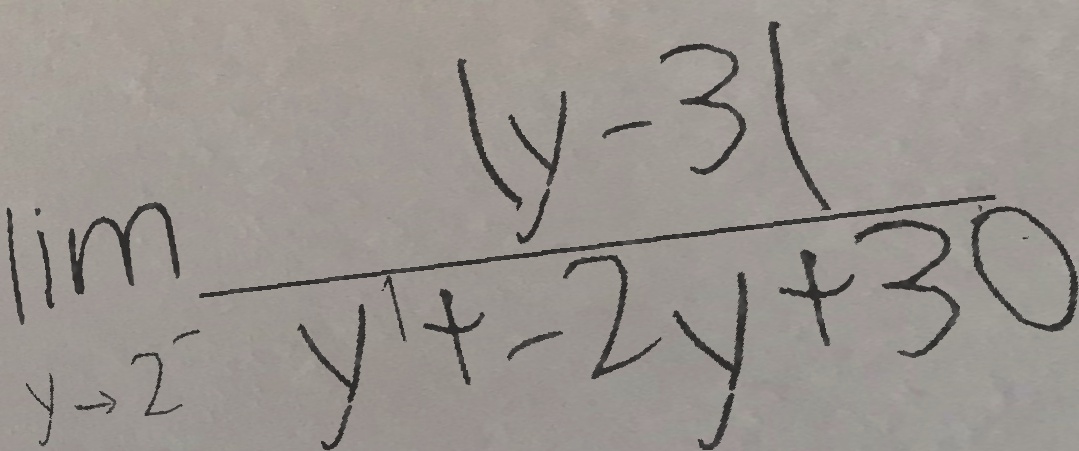 \lim_{y \to 2^-} \frac{|y-3|}{y^1+-2y+30}